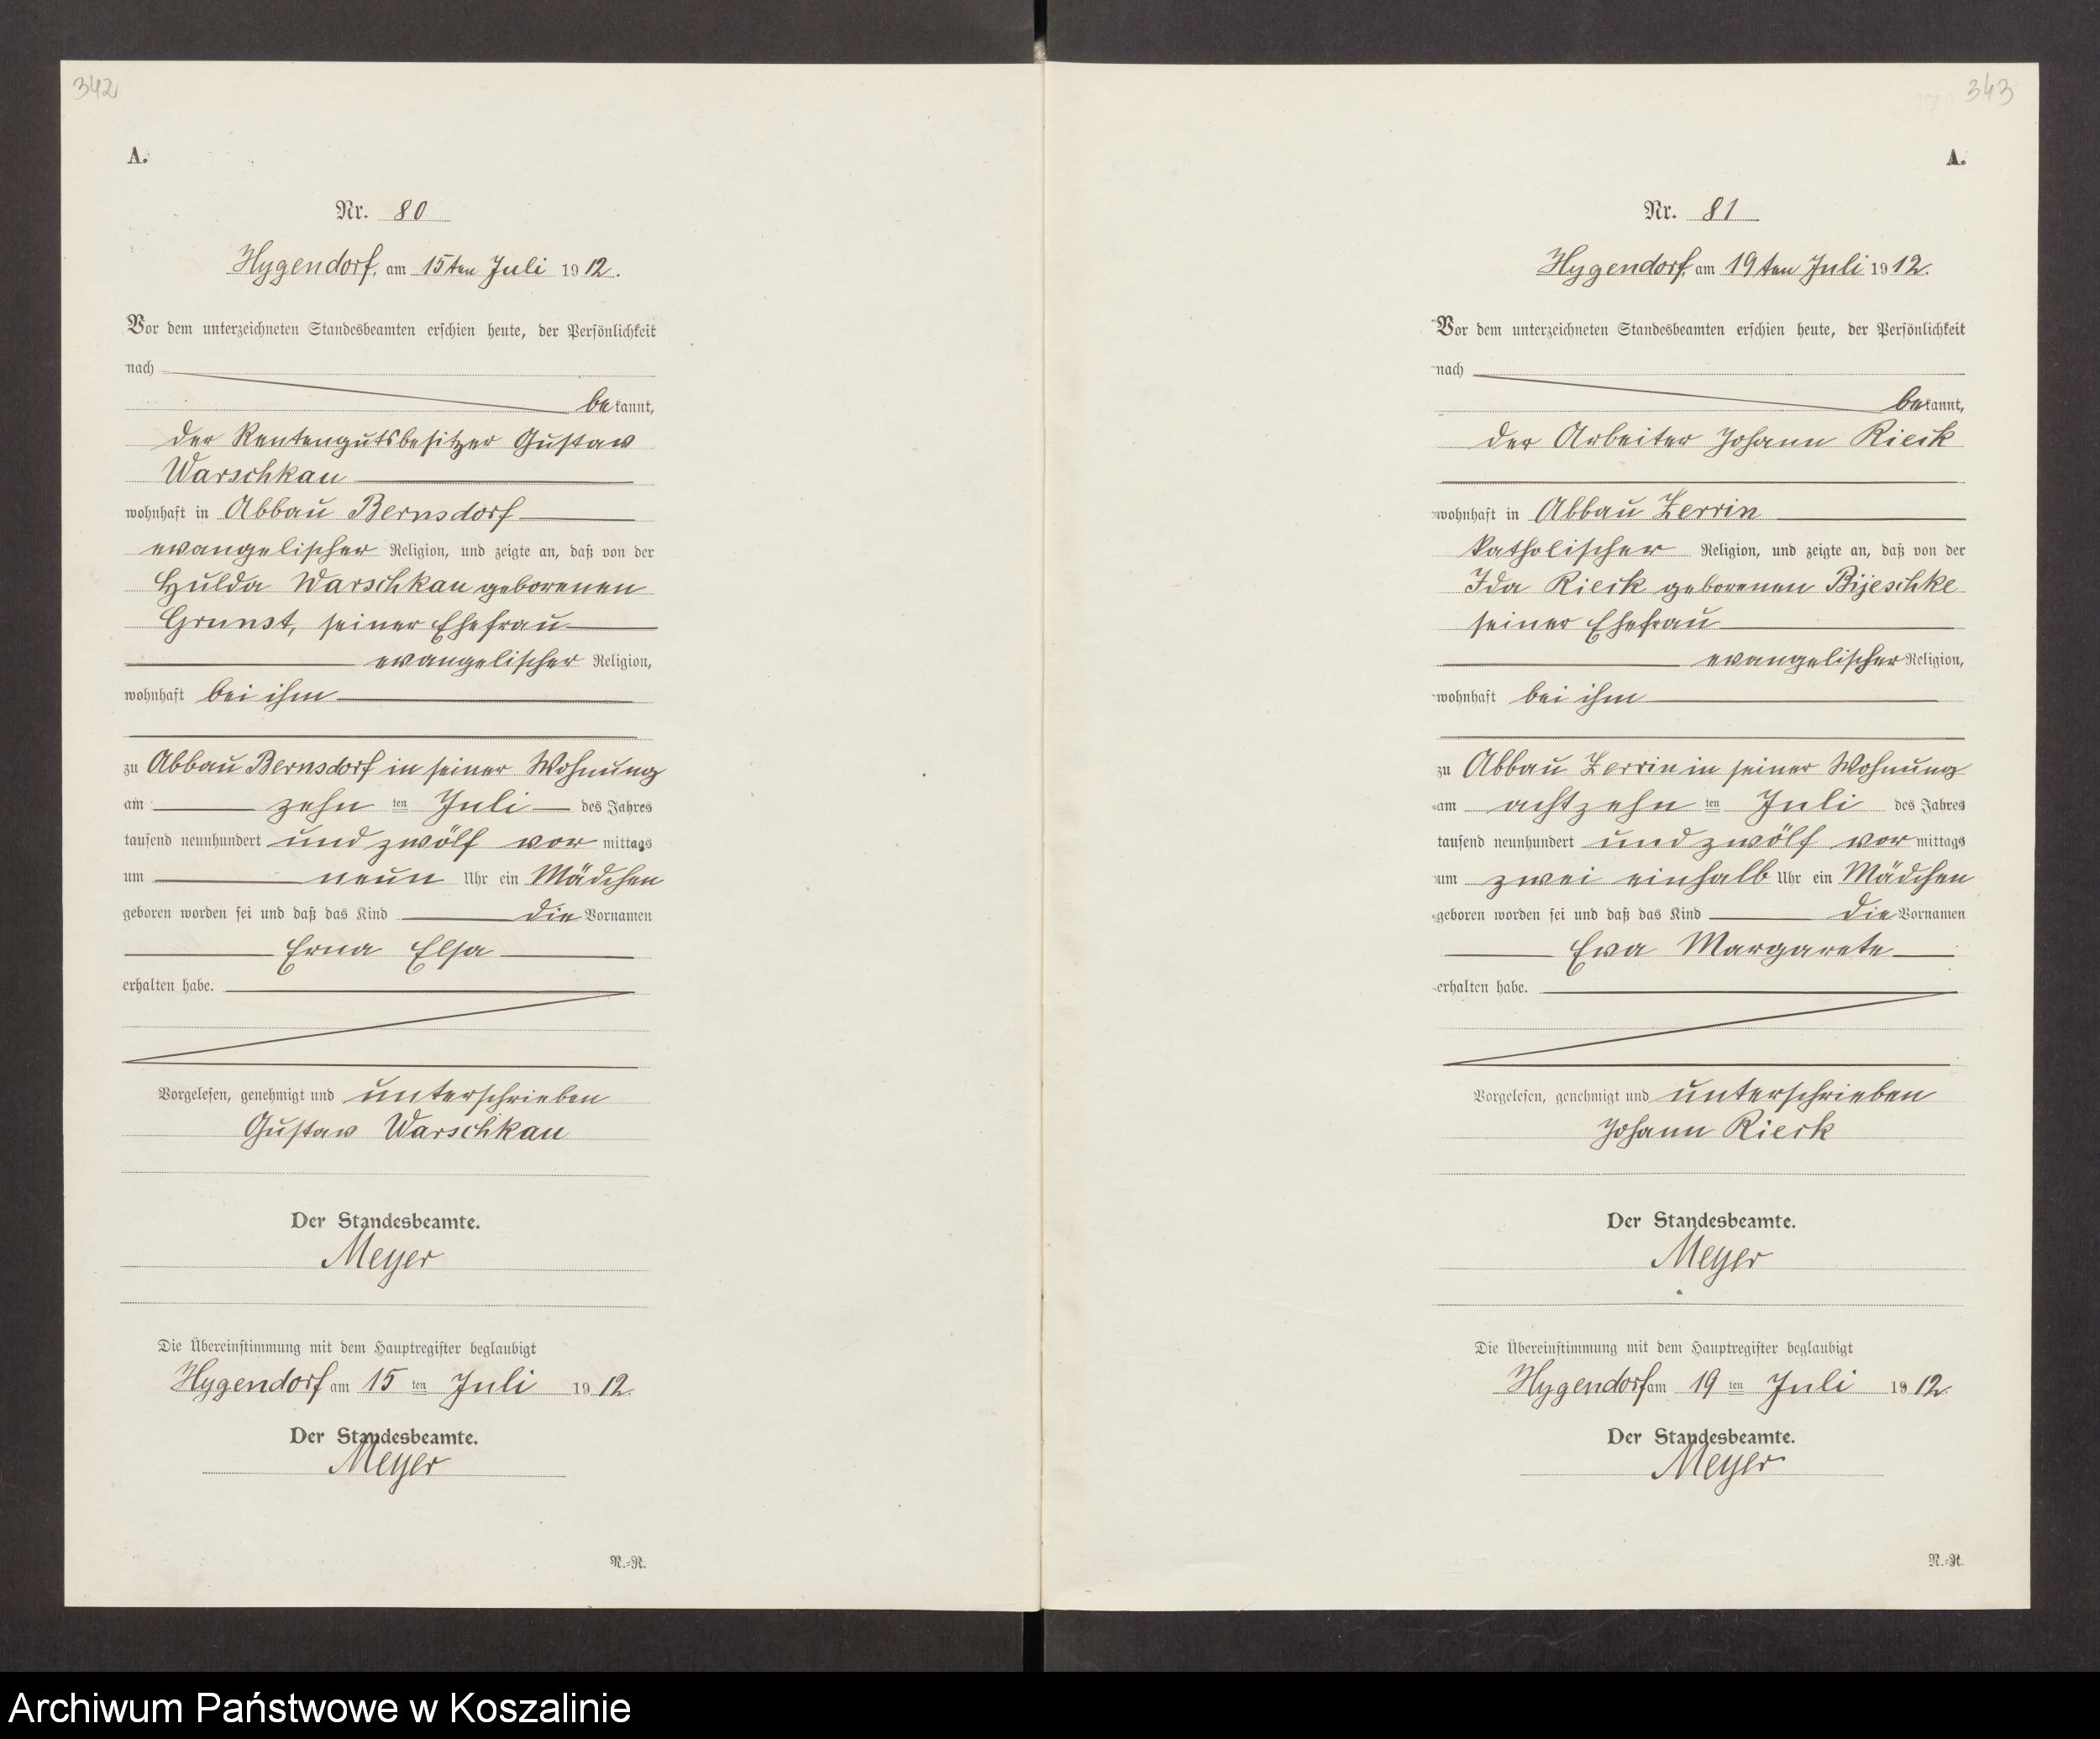 342
A.
Nr. 80
Hygendorf, am 15ten Juli 1912.
Vor dem unterzeichneten Standesbeamten erschien heute, der Persönlichkeit
nach
bekannt,
der Rentengutsbesitzer Gustav
Warschkau
wohnhaft in Abbau Bernsdorf
evangelischer Religion, und zeigte an, daß von der
Hulda Warschkau geborenen
Grunst, seiner Ehefrau
evangelischer Religion,
wohnhaft bei ihm
zu Abbau Bernsdorf in seiner Wohnung
am zehn ten Juli des Jahres
tausend neunhundert und zwölf vormittags
um neun Uhr ein Mädchen
geboren worden sei und daß das Kind die Vornamen
Erna Elsa
erhalten habe.
Vorgelesen, genehmigt und unterschrieben
Gustav Warschkau
Der Standesbeamte.
Meyer
Die Übereinstimmung mit dem Hauptregister beglaubigt
Hygendorf am 15 ten Juli 1912.
Der Standesbeamte.
Meyer
N.-R.
343
A.
Nr. 81
Hygendorf, am 19ten Juli 1912.
Vor dem unterzeichneten Standesbeamten erschien heute, der Persönlichkeit
nach
bekannt,
der Arbeiter Johann Rieck
wohnhaft in Abbau Zerrin
katholischer Religion, und zeigte an, daß von der
Ida Rieck geborenen Bijeschke
seiner Ehefrau
evangelischer Religion,
wohnhaft bei ihm
zu Abbau Zerrin in seiner Wohnung
am achtzehn ten Juli des Jahres
tausend neunhundert und zwölf vormittags
um zwei einhalb Uhr ein Mädchen
geboren worden sei und daß das Kind die Vornamen
Eva Margarete
erhalten habe.
Vorgelesen, genehmigt und unterschrieben
Johann Rieck
Der Standesbeamte.
Meyer
Die Übereinstimmung mit dem Hauptregister beglaubigt
Hygendorf am 19 ten Juli 1912.
Der Standesbeamte.
Meyer
N.-R.
Archiwum Państwowe w Koszalinie